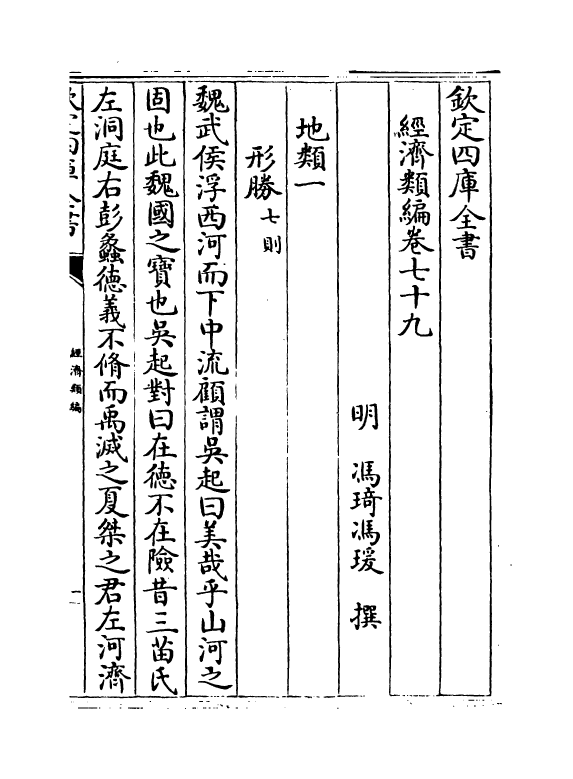 欽定四庫全書
經濟類編卷七十九
明 馮琦馮瑗 撰
地類一
形勝七則
魏武侯浮西河而下中流顧謂吳起曰美哉乎山河之
固也此魏國之寶也吳起對曰在德不在險昔三苗氏
左洞庭右彭蠡德義不脩而禹滅之夏桀之君左河濟
欽定四庫全書
經濟類編
一